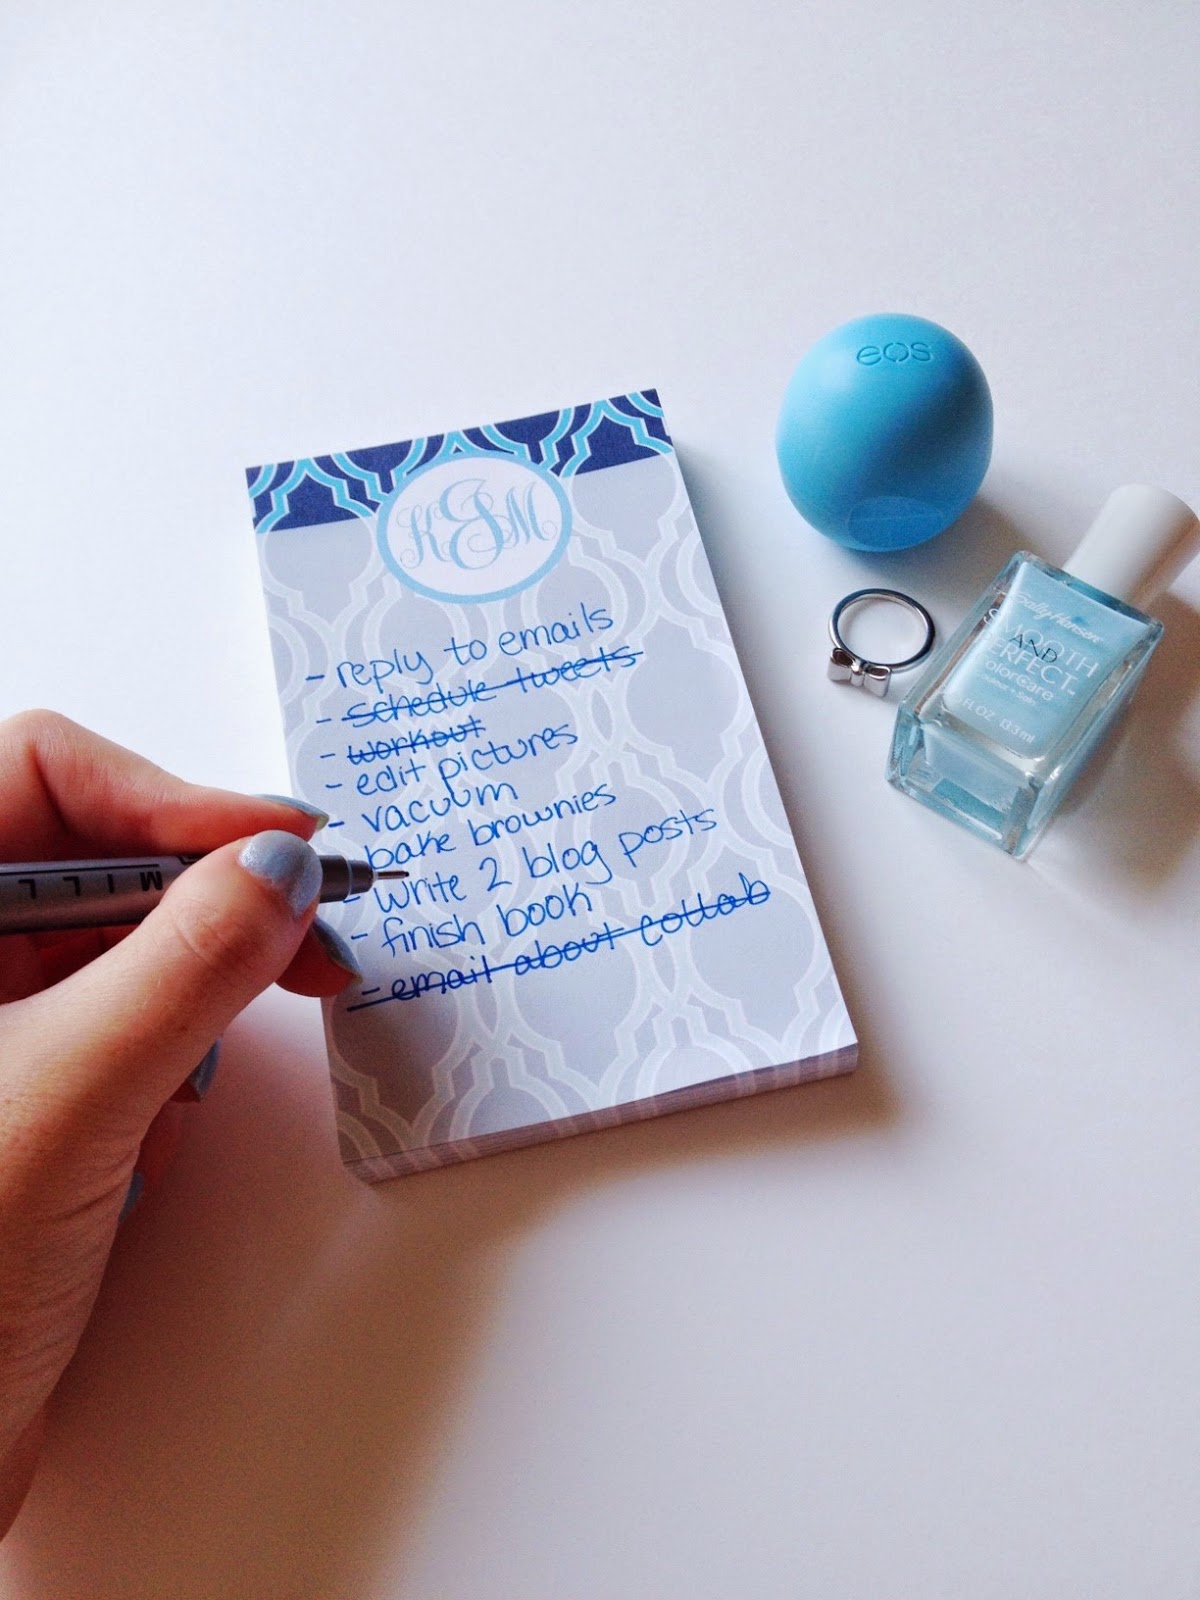 eos
KJM
- reply to emails
- schedule tweets
- workout
- edit pictures
- vacuum
bake brownies
- write 2 blog posts
- finish book
- email about collab
Sally Hansen
SMOOTH
AND
PERFECT
ColorCare
FL OZ 13.3 ml
MILL